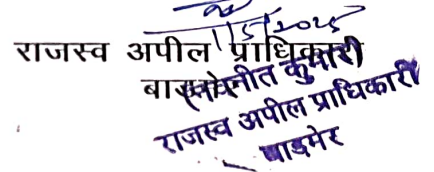 1/5/2025
राजस्व अपील प्राधिकारी
बाड़मेर
(नवनीत कुमारी
राजस्व अपील प्राधिकारी
बाड़मेर